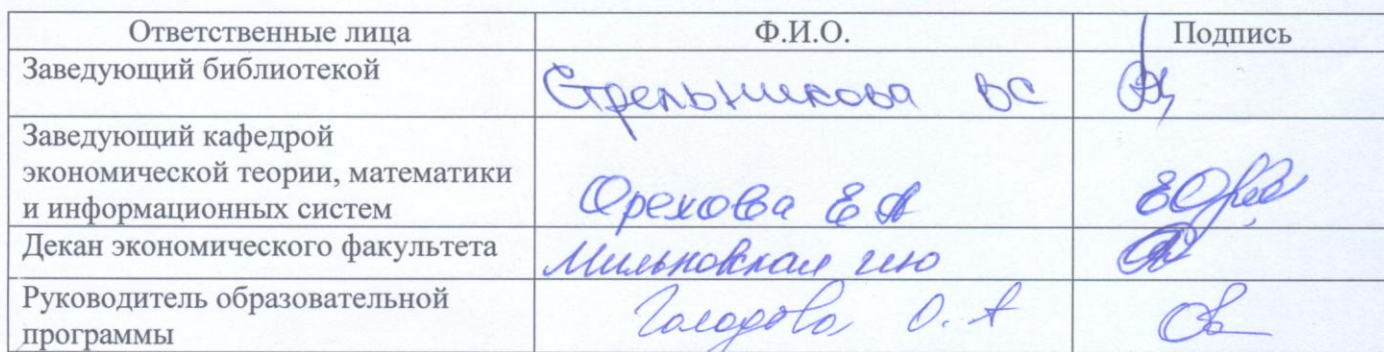 Ответственные лица Ф.И.О. Подпись
Заведующий библиотекой Стрельникова ВС
Заведующий кафедрой
экономической теории, математики
и информационных систем Орехова Е А
Декан экономического факультета
Руководитель образовательной О. А
программы